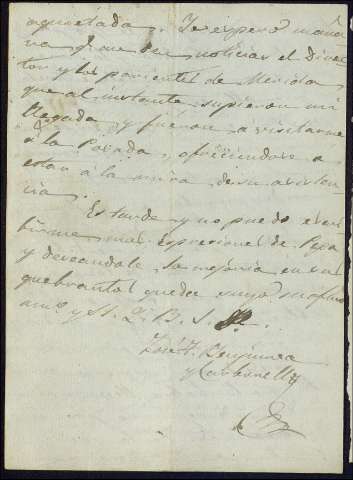 aquietada. Le espero maña-
na que den noticias el Direc-
tor y los parientes de Merida,
que al instante supieron mi
llegada, y fueron a visitarme
á la Posada, ofreciendose a
estar a la mira de su asisten-
cia.
Es tarde y no puedo escri-
birme mas expresiones de Pepa
y deseandole la mejoria en sus
quebrantos queda suyo
am.º y S. Q. B. S. M.
José J.
y Carbonell